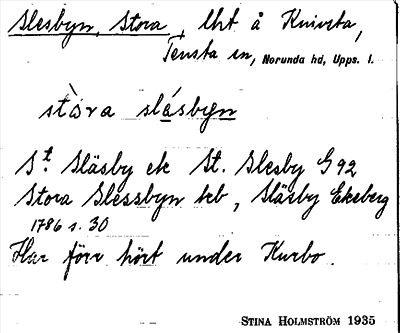 Slesbyn, Stora, lht å Knivsta,
Tensta sn, Norunda hd, Upps. l.
stòra slásbyn
St. Släsby ek St. Slesby G 92
Stora Slessbyn kb, Släsby Ekeberg
1786 s. 30
Har förr hört under Kurbo.
STINA HOLMSTRÖM 1935